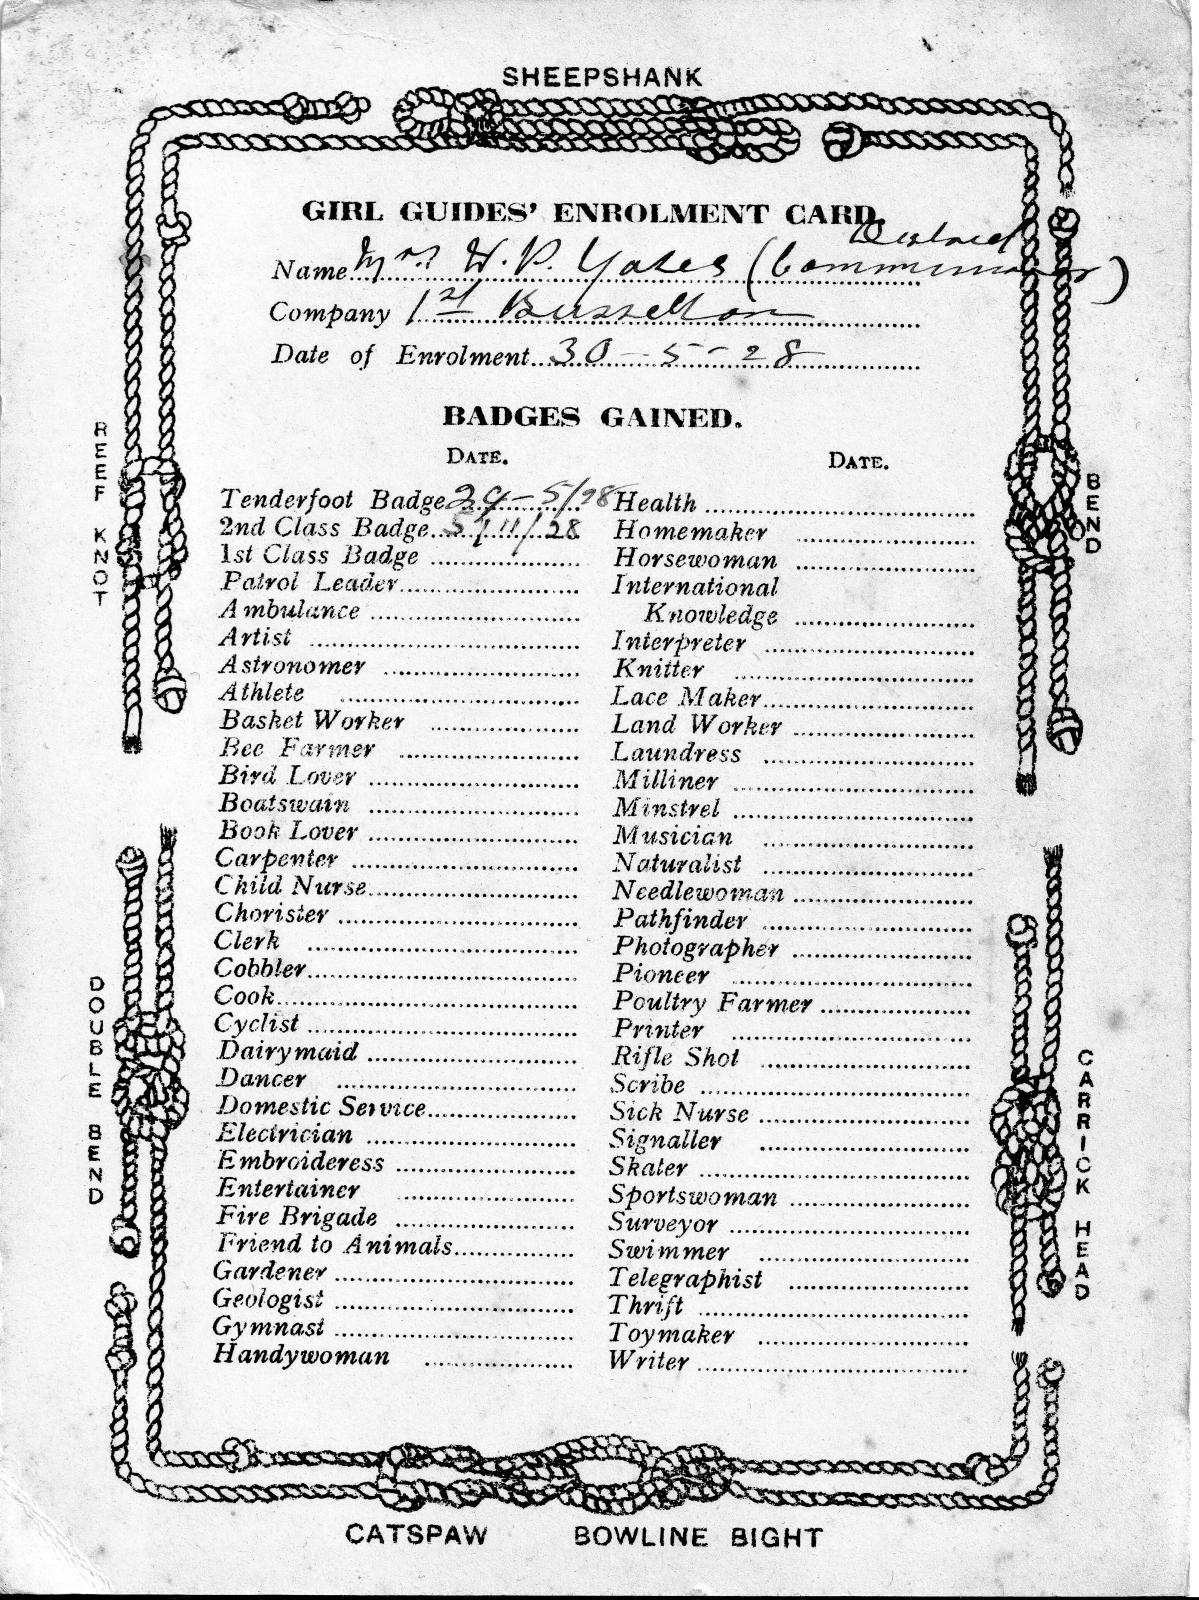 SHEEPSHANK
GIRL GUIDES' ENROLMENT CARD.
District
Name Mrs W. P. Yates (Commissioner)
Company 1st Busselton
Date of Enrolment 30 - 5 - 28
BADGES GAINED.
DATE. DATE.
REEF KNOT
BEND
Tenderfoot Badge 29 - 5/28 Health
2nd Class Badge 5/11/28 Homemaker
1st Class Badge Horsewoman
Patrol Leader International
Ambulance Knowledge
Artist Interpreter
Astronomer Knitter
Athlete Lace Maker
Basket Worker Land Worker
Bee Farmer Laundress
Bird Lover Milliner
Boatswain Minstrel
Book Lover Musician
Carpenter Naturalist
Child Nurse Needlewoman
Chorister Pathfinder
Clerk Photographer
Cobbler Pioneer
Cook Poultry Farmer
Cyclist Printer
Dairymaid Rifle Shot
Dancer Scribe
Domestic Service Sick Nurse
Electrician Signaller
Embroideress Skater
Entertainer Sportswoman
Fire Brigade Surveyor
Friend to Animals Swimmer
Gardener Telegraphist
Geologist Thrift
Gymnast Toymaker
Handywoman Writer
DOUBLE BEND
CARRICK HEAD
CATSPAW BOWLINE BIGHT